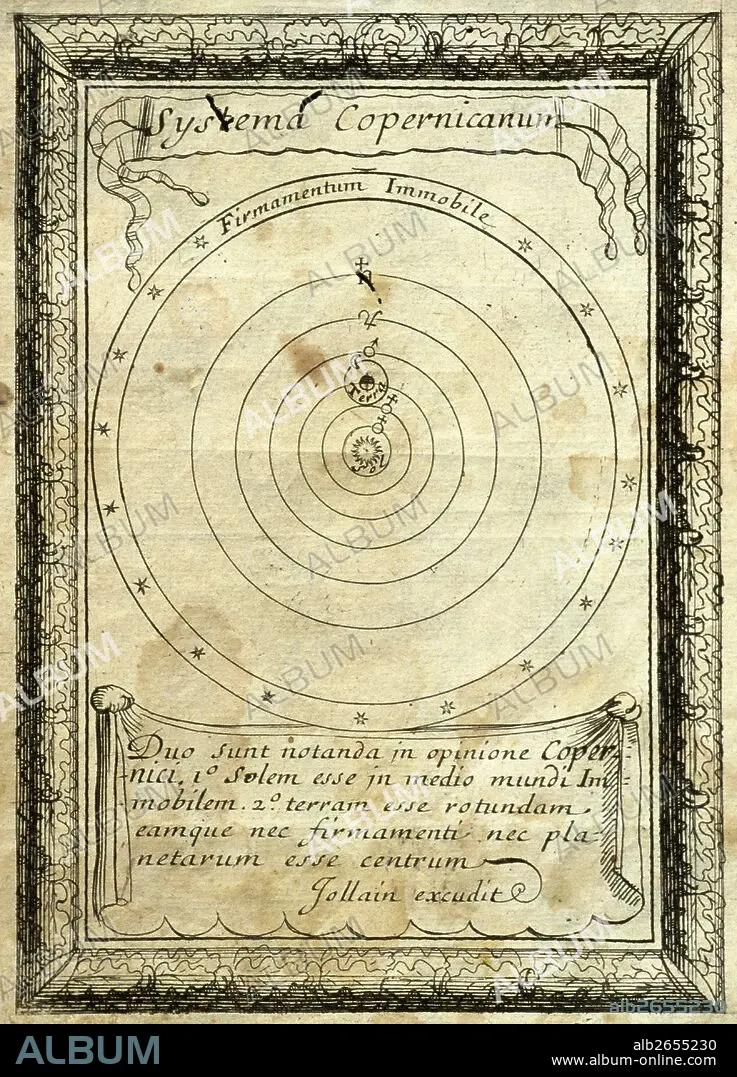 Systema Copernicanum
Firmamentum Immobile
♄
♃
♂
Terra
♀
☿
Sol
Duo sunt notanda jn opinione Coper-
-nici, 1.º Solem esse jn medio mundi Im-
mobilem. 2.º terram esse rotundam
eamque nec firmamenti nec pla-
netarum esse centrum
Jollain excudit
ALBUM
alb2655230
ALBUM
alb2655230
www.album-online.com